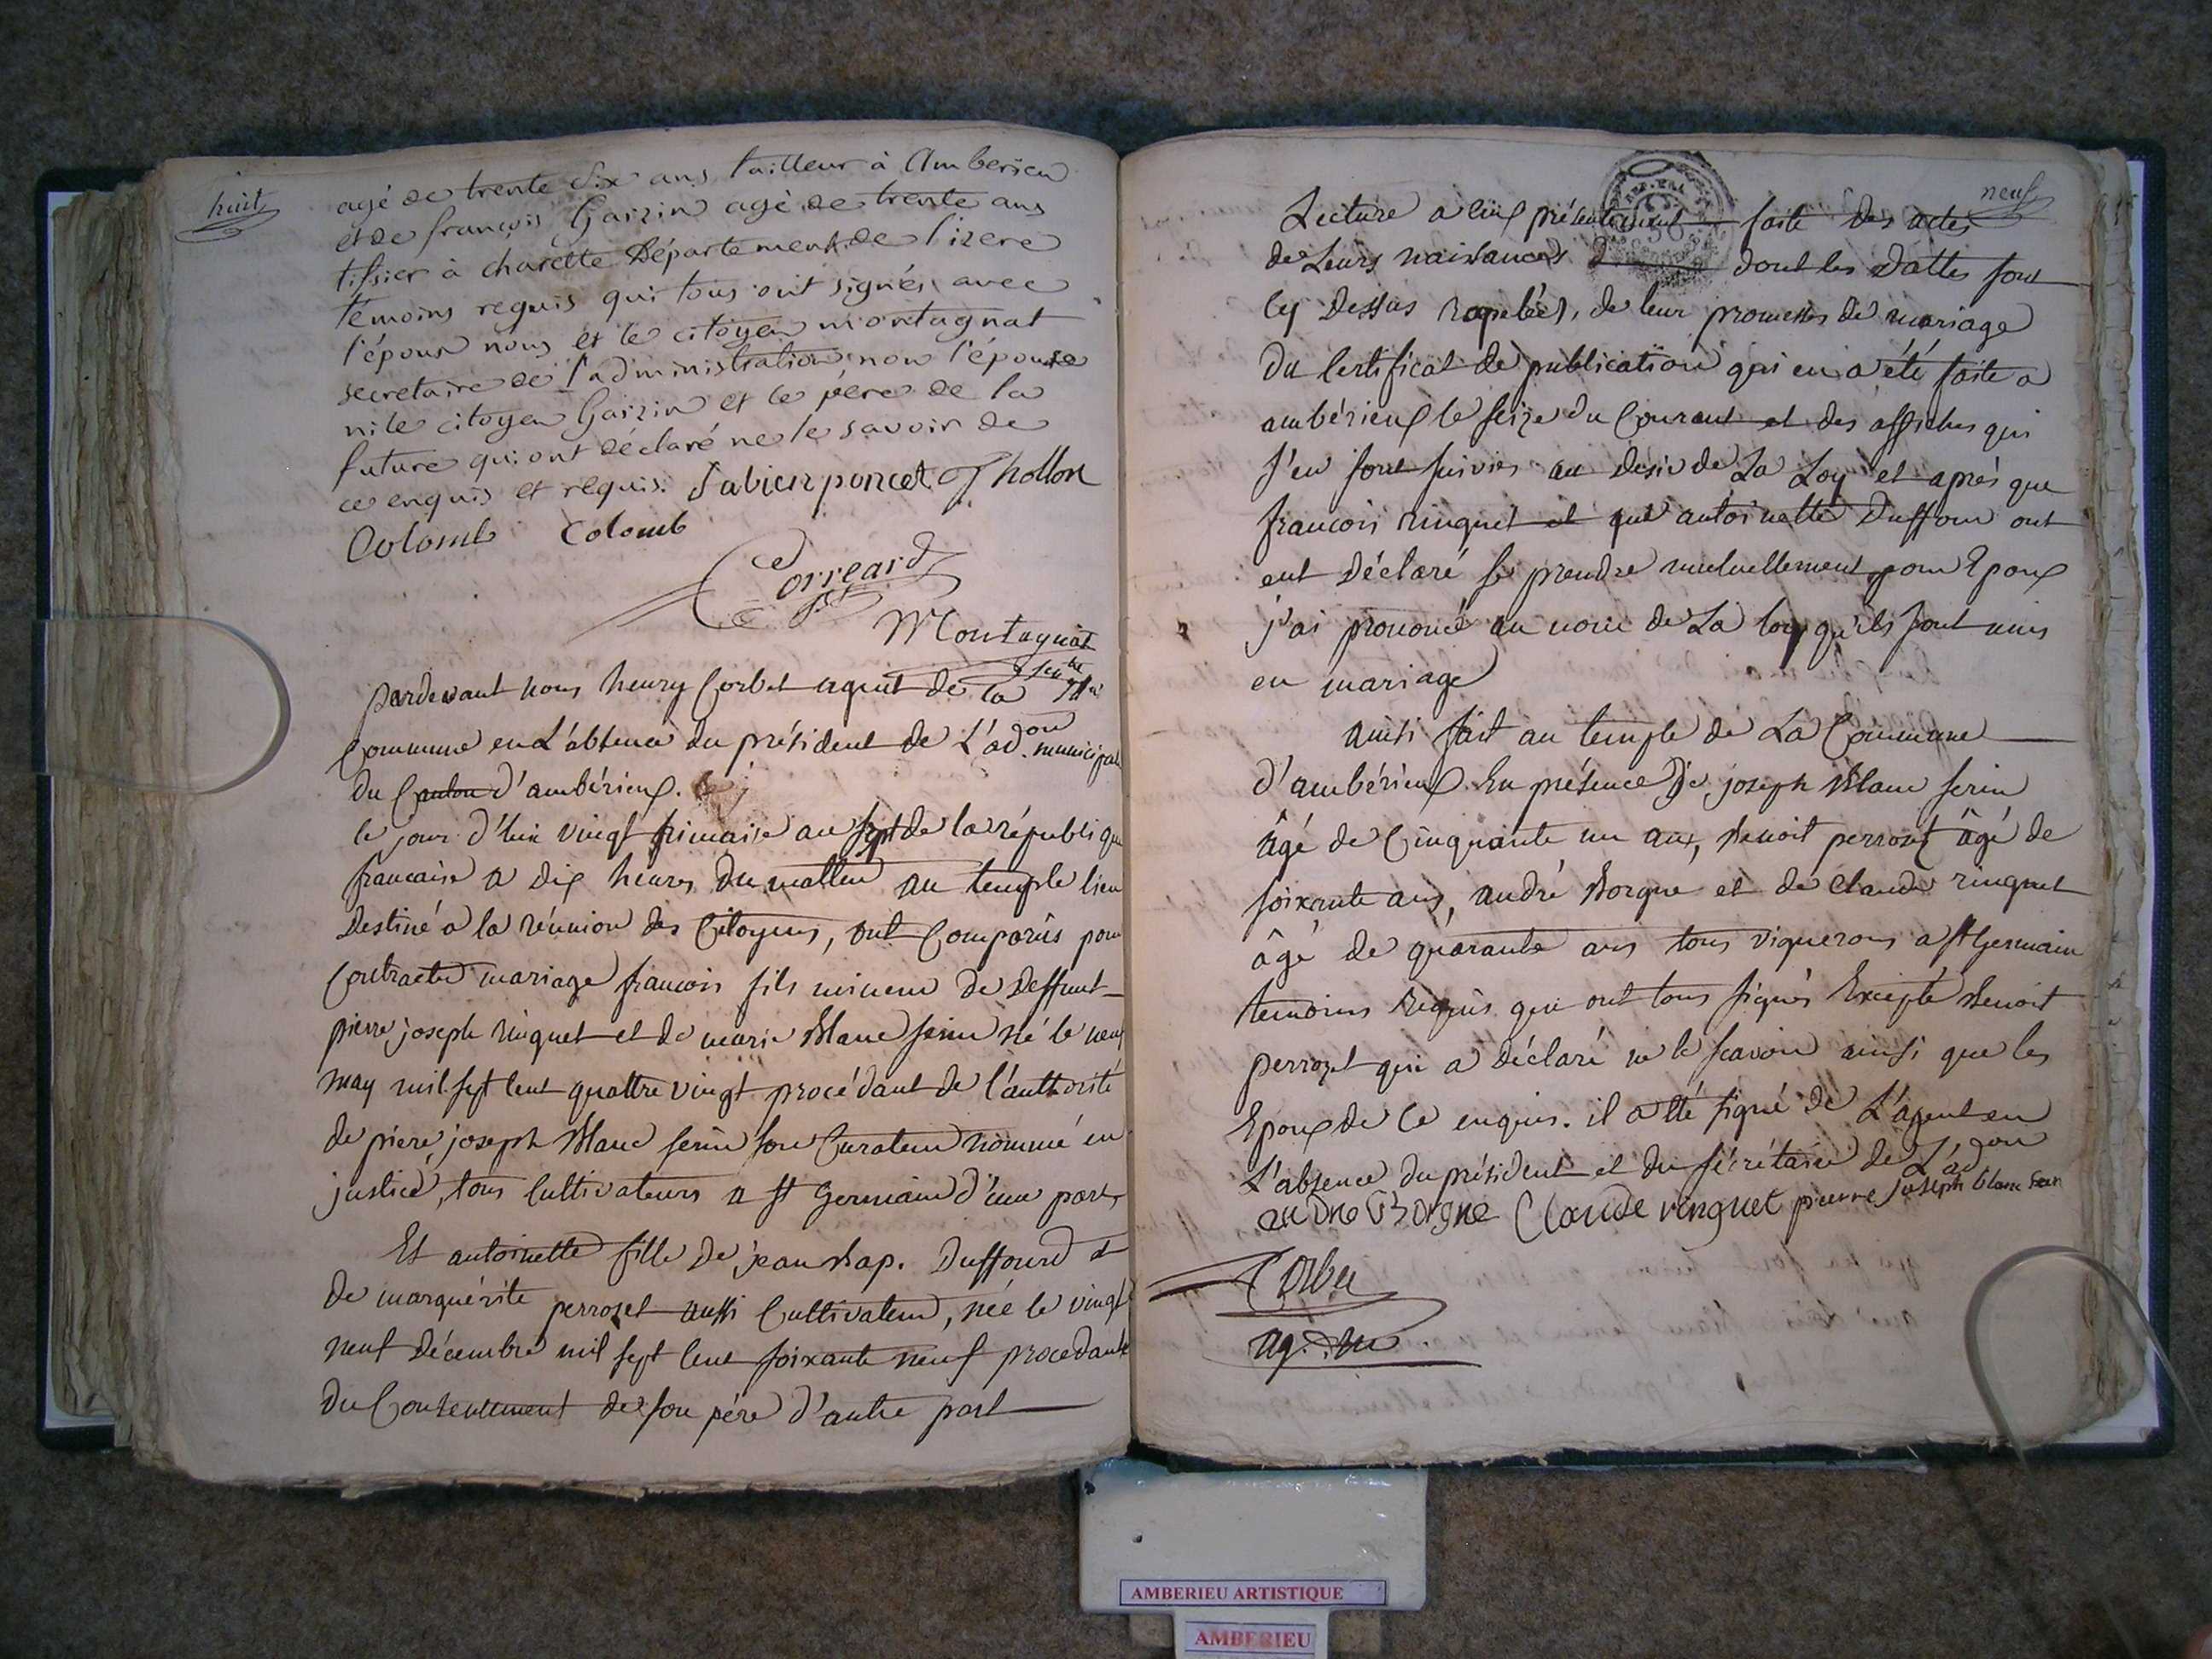 huit
agé de trente six ans tailleur à Amberieu
et de françois Gaizin agé de trente ans
tissier à charette Département de l'izere
témoins requis qui tous ont signés avec
l'époux nous et le citoyen montagnat
secretaire de l'administration non l'épouse
ni le citoyen Gaizin et le père de la
future qui ont déclaré ne le savoir de
ce enquis et requis. fabien poncet Thollon
Colomb Colomb
Correard
Montagnat
pardevant nous henry Corbet agent de la
Commune en L'absence du président de L'ad.on municipale
du Canton d'ambérieux.
le jour d'hui vingt frimaire an sept de la républi que
francaise a dix heures du mattin au temple lieu
Destiné a la réunion des Citoyens, ont Comparûs pour
Contracter mariage francois fils mineur de Deffunt
pierre joseph ringuet et de marie Blanc serin né le neuf
may mil sept cent quattre vingt procédant de l'authorité
de piere joseph Blanc serin son Curateur nommé en
justice, tous Cultivateurs a St Germain d'une part,
Et antoinette fille de jean bap. Duffourd et
de marguérite perrozet aussi Cultivateur, née le vingt
neuf Décembre mil sept cent soixante neuf procedante
du Consentement de son pére d'autre part
neuf
Lecture a eux présentement faite des actes
de Leurs naissances dont les dattes sont
cy Dessus rapelées, de leur promesses de mariage
du Certificat de publication qui en a été faite a
ambérieux le seize du Courant et des affiches qui
s'en sont suivies au desir de La Loy et aprés que
francois ringuet et que antoinette Duffour ont
eut Déclaré se prendre mutuellement pour Epoux
j'ai prononcé au nom de La loy qu'ils sont unis
en mariage
ainsi fait au temple de La Commune
d'ambérieux En présence de joseph Blanc serin
âgé de Cinquante un ans, Benoit perrozet âgé de
soixante ans, andré Borgne et de Claude ringuet
âgé de quarante ans tous vignerons a St Germain
temoins requis qui ont tous signés Excepté Benoit
perrozet qui a déclaré ne le scavoir ainsi que les
Epoux de Ce enquis. il a été signé de L'agent en
L'absence du président et du sécrétaire de L'ad.on
andre Borgne Claude ringuet pierre joseph blanc serin
Corbet
ag. m
AMBERIEU ARTISTIQUE
AMBERIEU